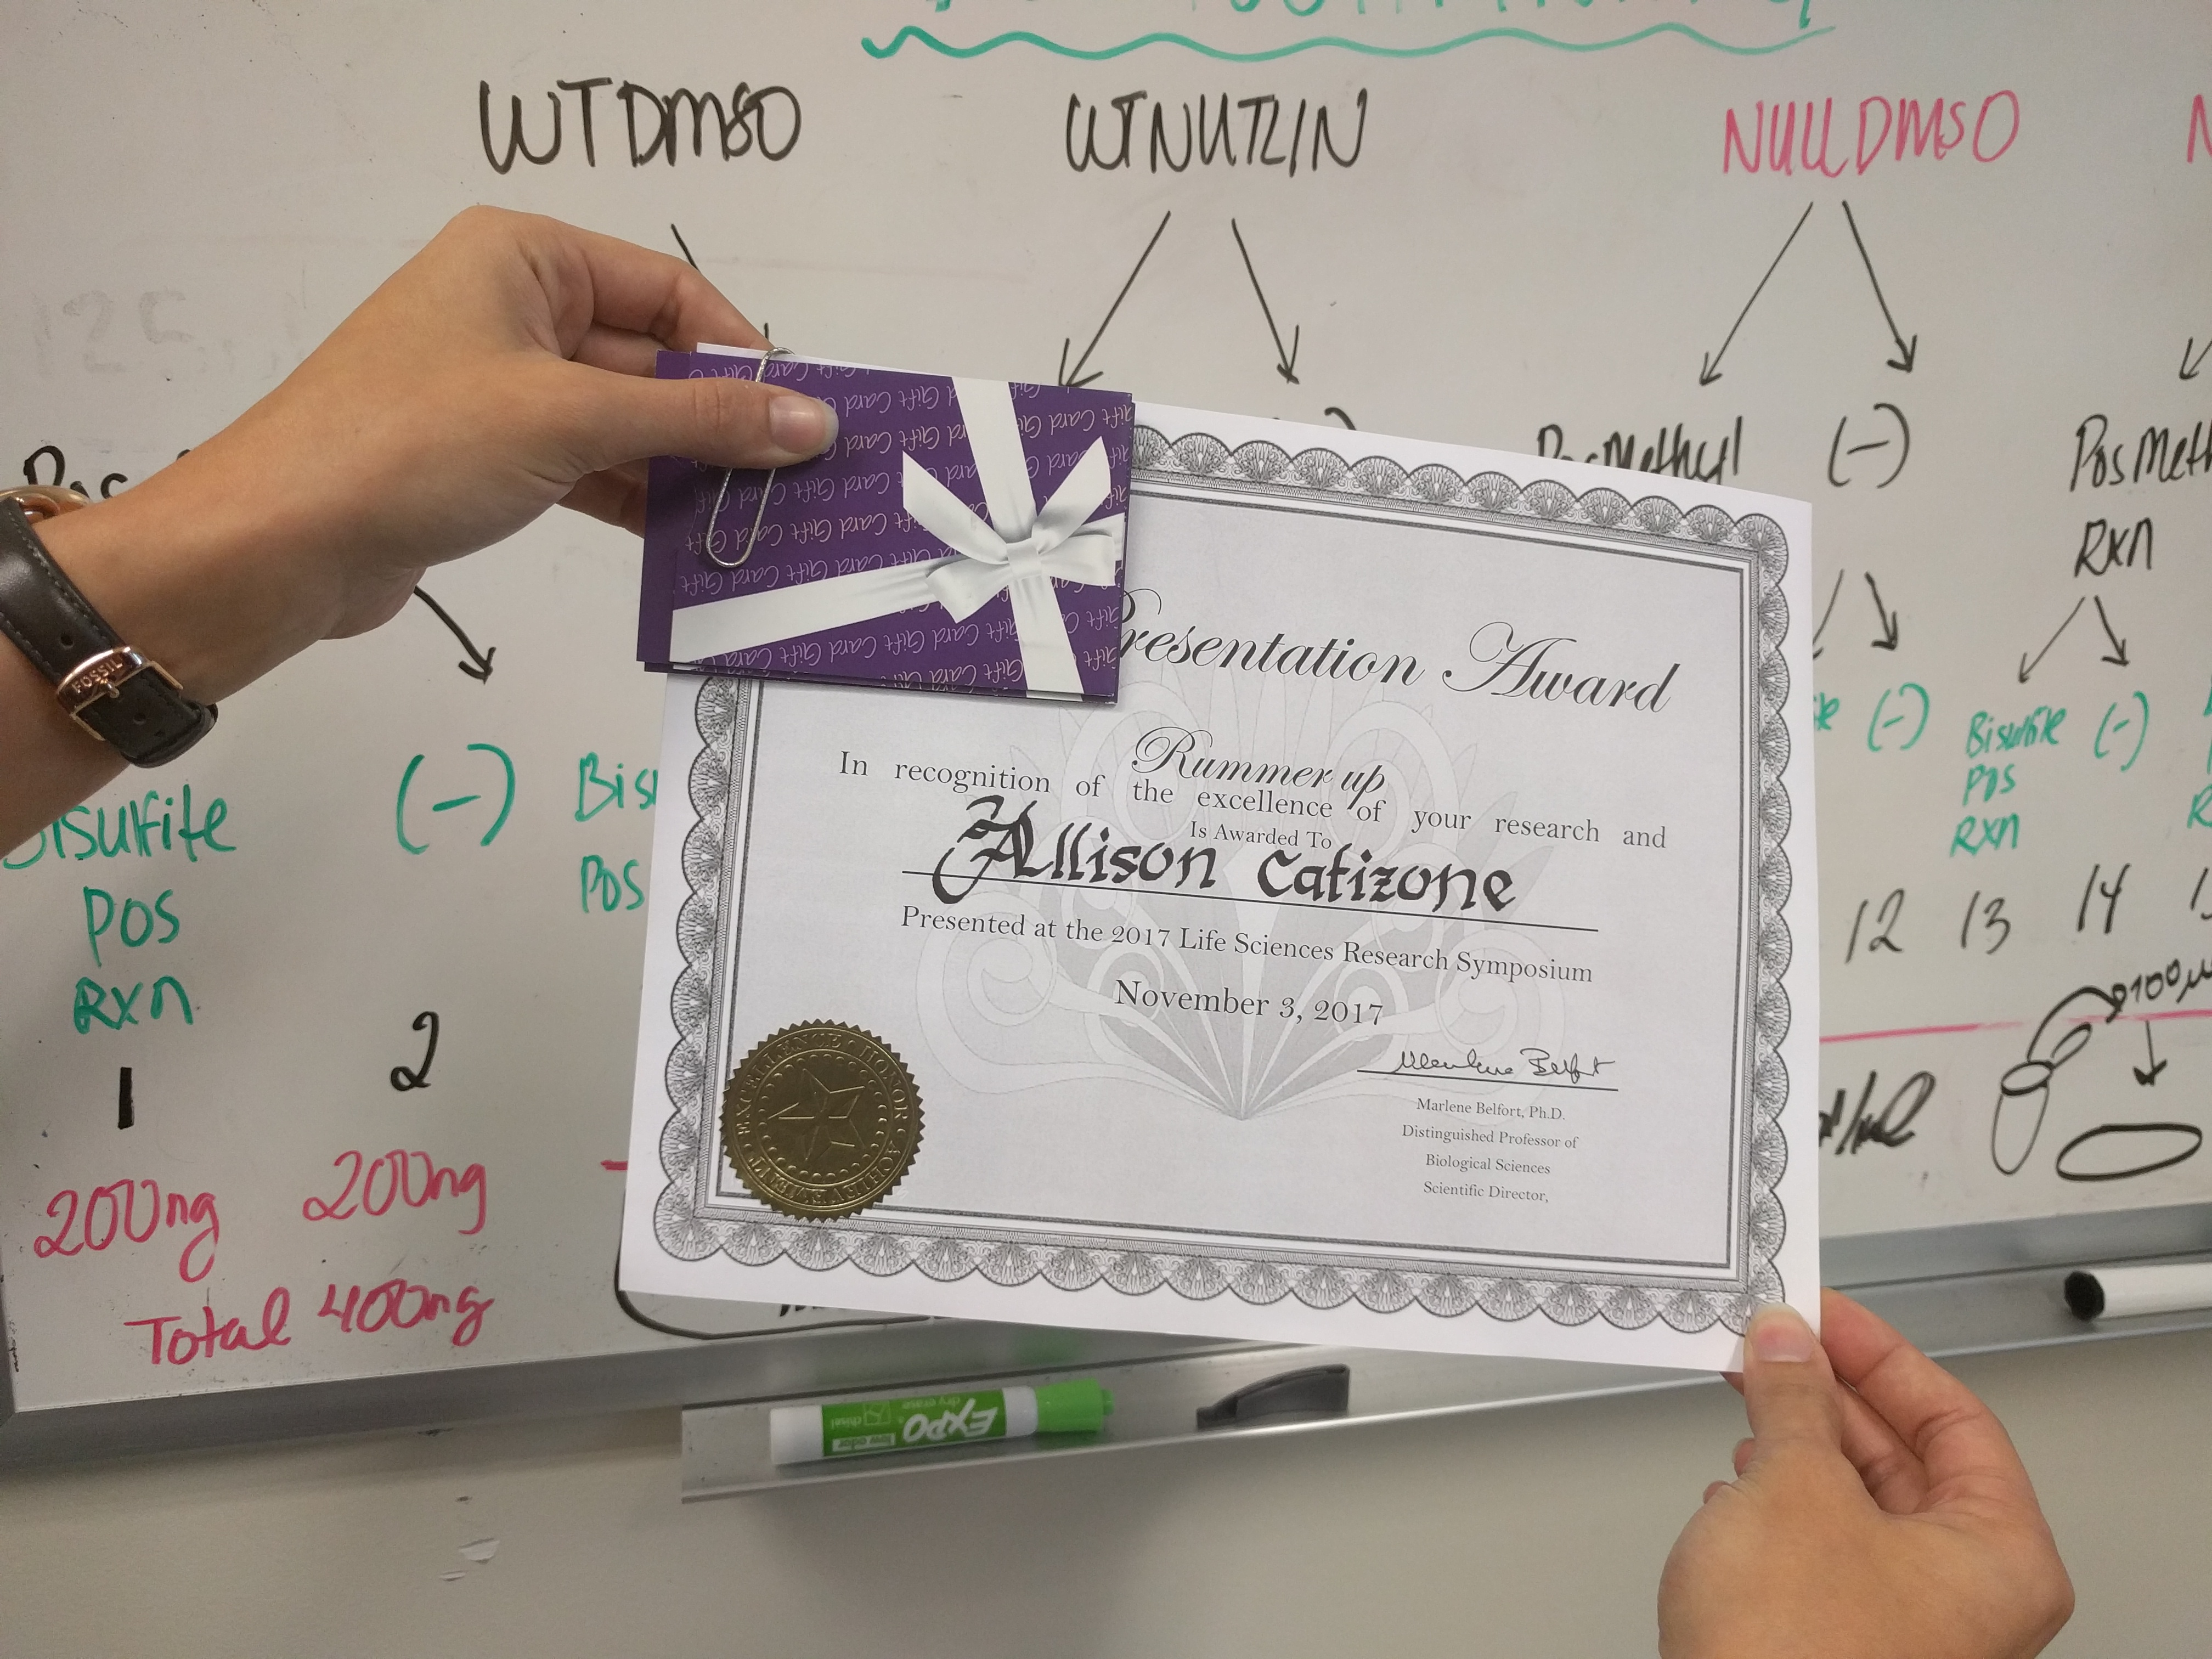 WTDMSO
WTNUTLIN
NULLDMSO
PosMethyl
(-)
Pos Meth
RXN
Bisulfite
POS
RXN
(-)
Bis
POS
(-)
Bisulfite
POS
RXN
(-)
1
2
12
13
14
200ng
200ng
Total 400ng
Gift Card
Presentation Award
Rummer up
In recognition of the excellence of your research and
Is Awarded To
Allison Catizone
Presented at the 2017 Life Sciences Research Symposium
November 3, 2017
Marlene Belfort
Marlene Belfort, Ph.D.
Distinguished Professor of
Biological Sciences
Scientific Director,
EXCELLENCE HONOR ACHIEVEMENT
FOSSIL
EXPO
dry erase
chisel
low odor